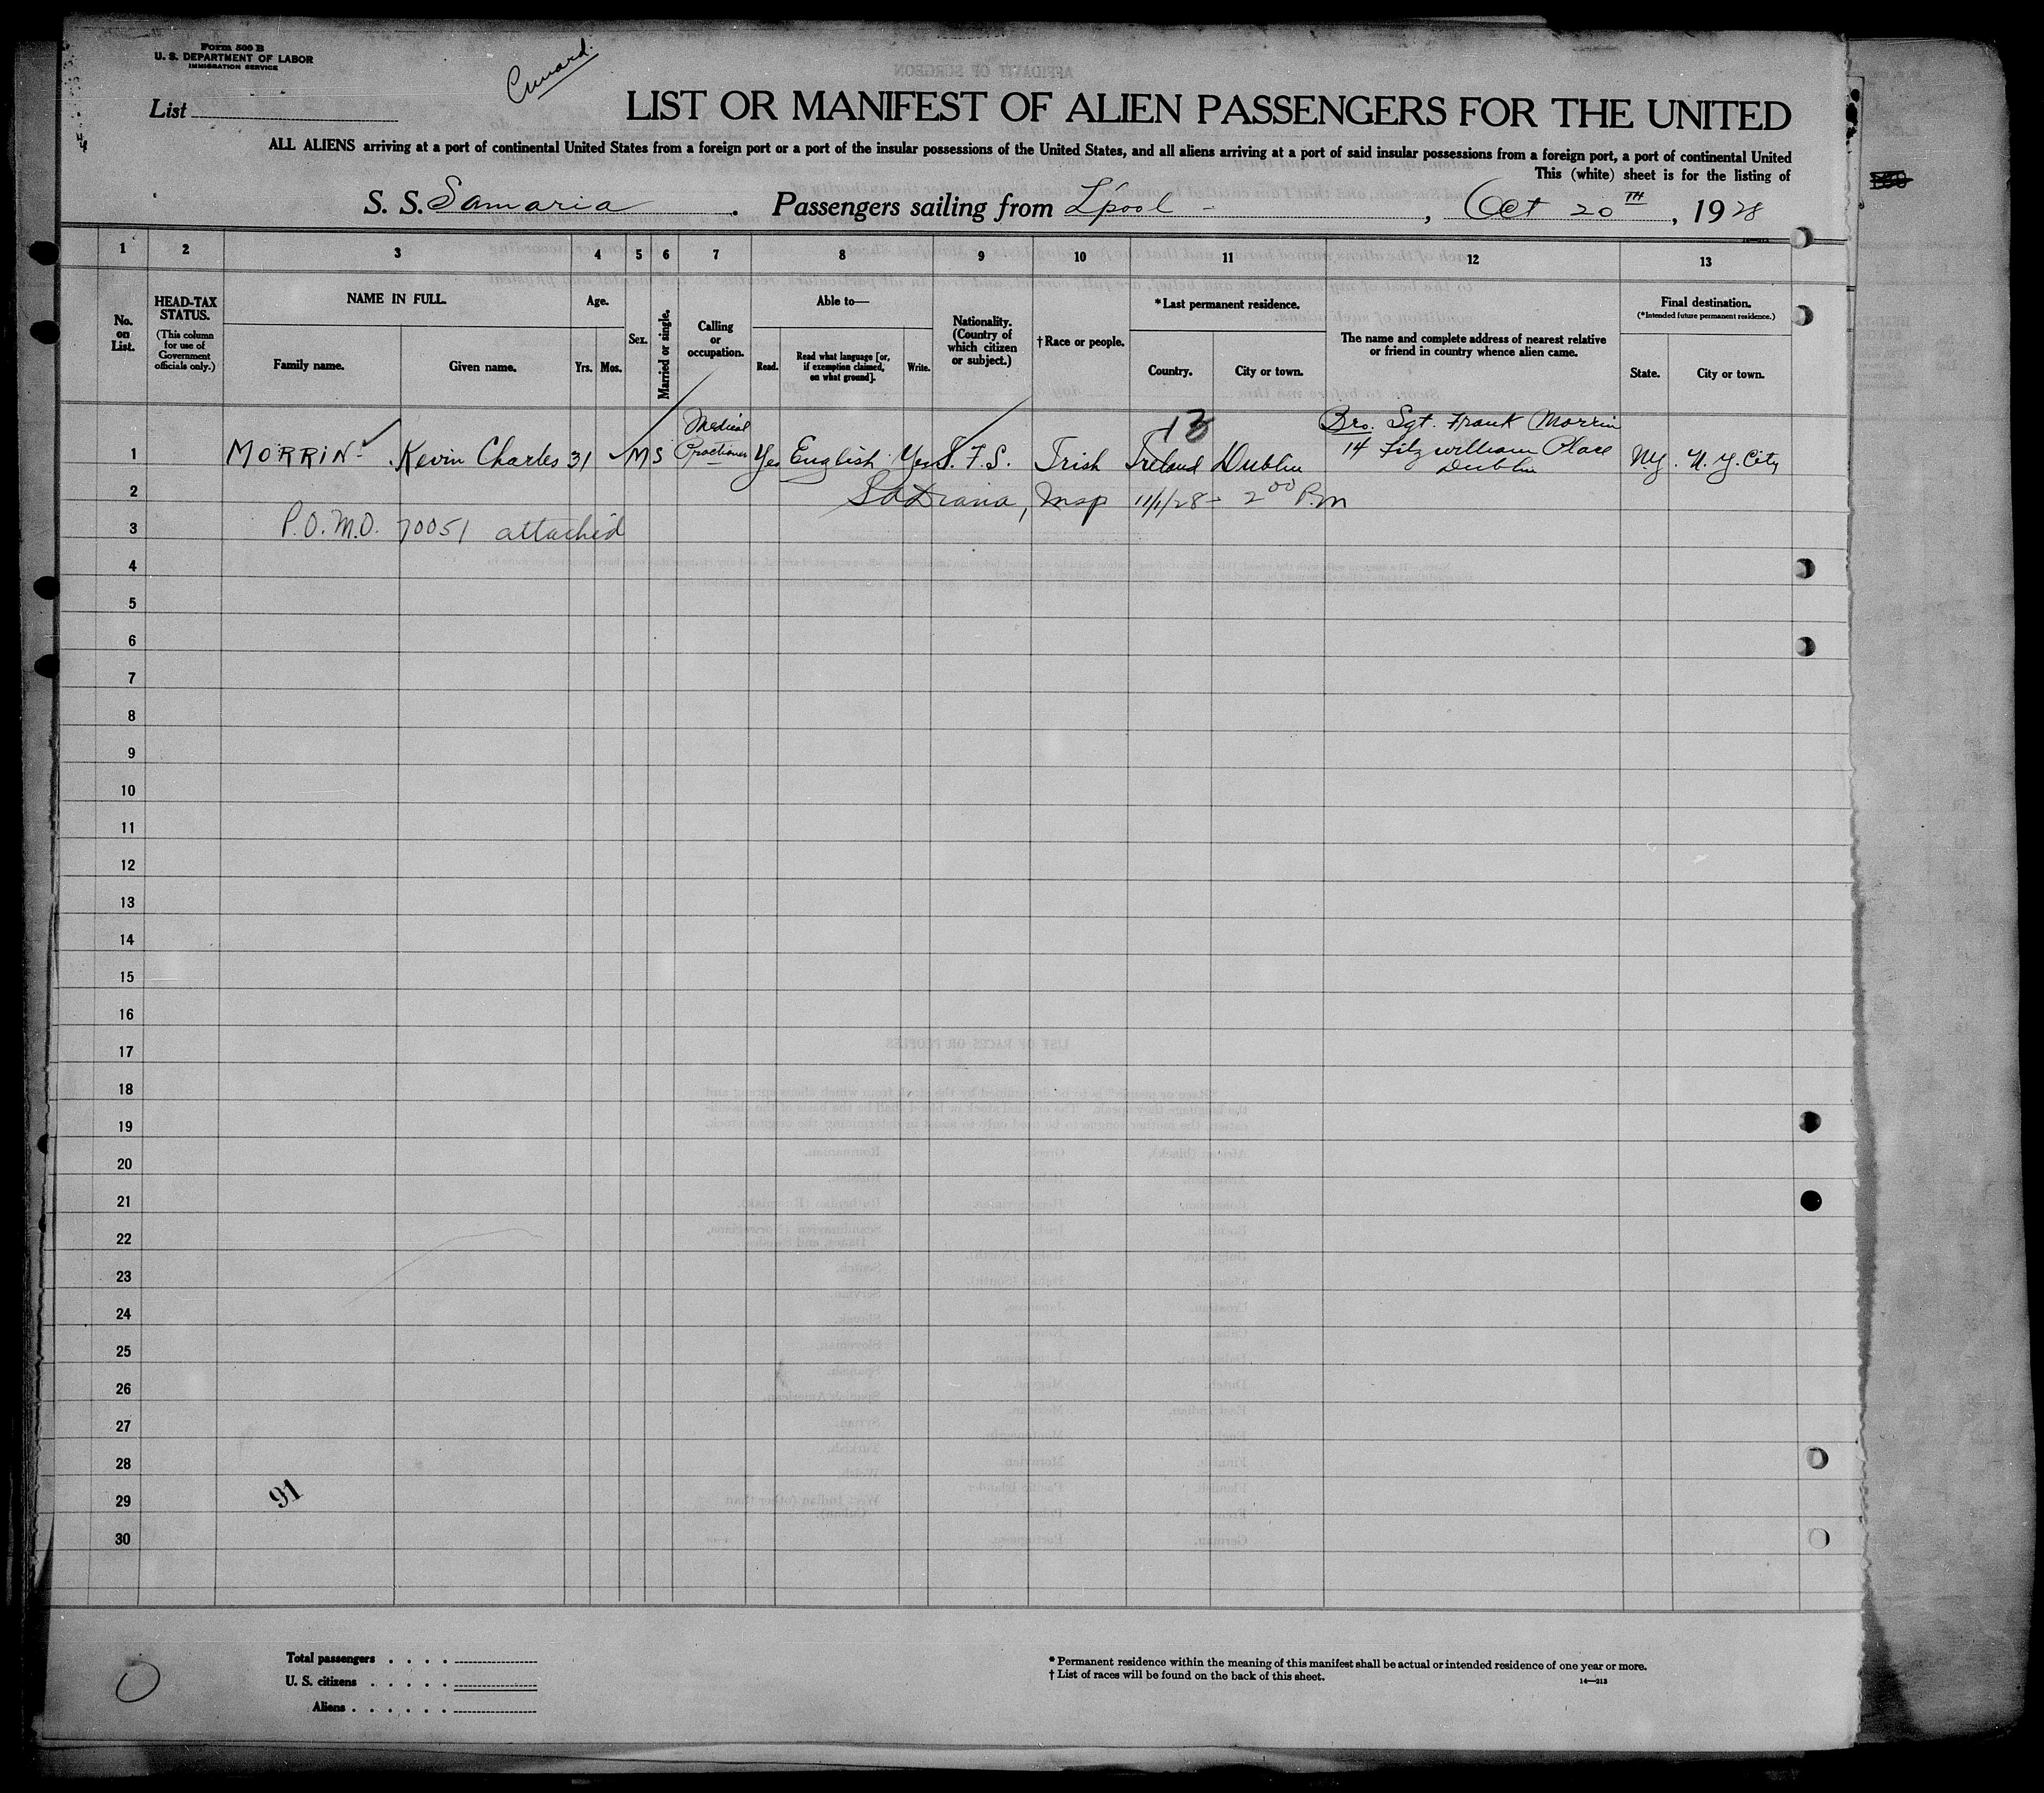 Form 500 B
U. S. DEPARTMENT OF LABOR
IMMIGRATION SERVICE
Cunard.
List
LIST OR MANIFEST OF ALIEN PASSENGERS FOR THE UNITED
ALL ALIENS arriving at a port of continental United States from a foreign port or a port of the insular possessions of the United States, and all aliens arriving at a port of said insular possessions from a foreign port, a port of continental United
This (white) sheet is for the listing of
S. S. Samaria . Passengers sailing from L'pool - , Oct 20TH , 1928
1 2 3 4 5 6 7 8 9 10 11 12 13
HEAD-TAX STATUS.
(This column for use of Government officials only.)
No. on List.
NAME IN FULL.
Family name. Given name.
Age.
Yrs. Mos.
Sex.
Married or single.
Calling or occupation.
Able to—
Read. Read what language [or, if exemption claimed, on what ground]. Write.
Nationality. (Country of which citizen or subject.)
†Race or people.
*Last permanent residence.
Country. City or town.
The name and complete address of nearest relative or friend in country whence alien came.
Final destination.
(*Intended future permanent residence.)
State. City or town.
Medical
13
Bro. Sgt. Frank Morrin
1 MORRIN Kevin Charles 31 M S Practioner Yes English Yes I. F. S. Irish Ireland Dublin 14 Fitzwilliam Place N.Y. N. Y. City
Dublin
2 Insp 11/1/28 - 2 00 P.m
3 P.O.M.O. 70051 attached
4
5
6
7
8
9
10
11
12
13
14
15
16
17
18
19
20
21
22
23
24
25
26
27
28
29
30
91
Total passengers . . . .
U. S. citizens . . . . .
Aliens . . . . . .
* Permanent residence within the meaning of this manifest shall be actual or intended residence of one year or more.
† List of races will be found on the back of this sheet.
14—213